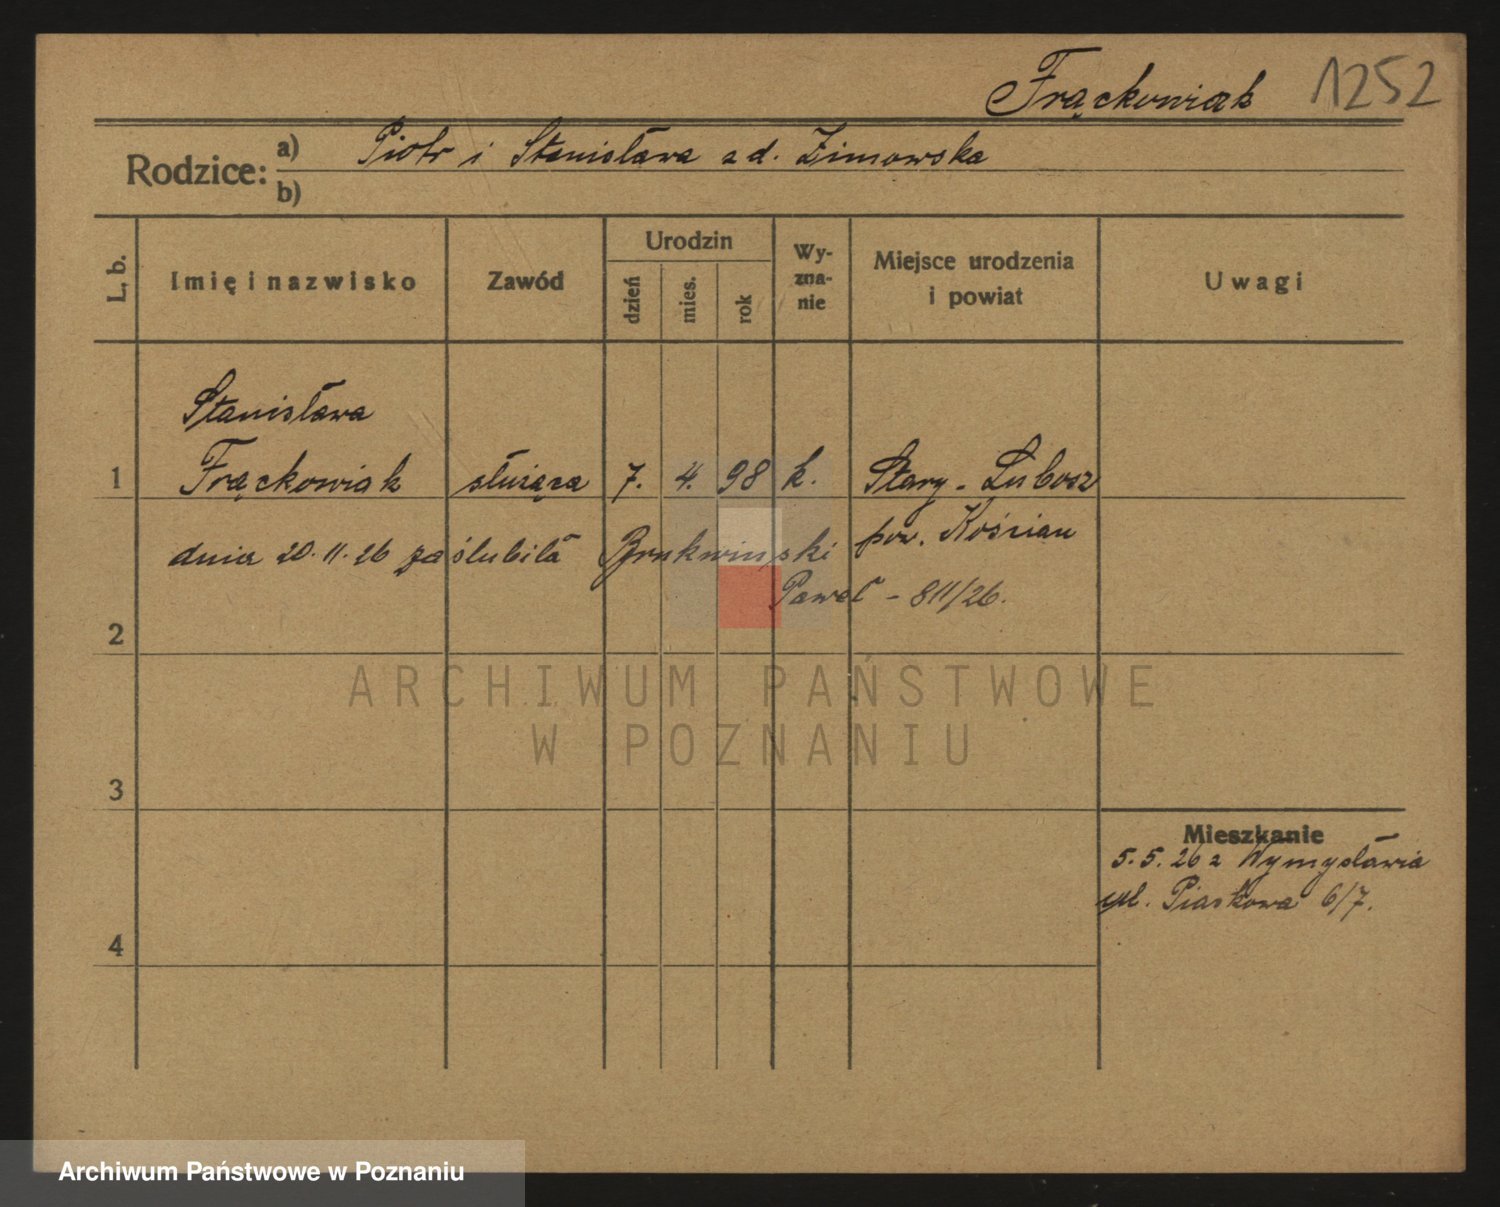 Frąckowiak 1252
Rodzice: a) Piotr i Stanisława z d. Zimowska
b)
L. b. Imię i nazwisko Zawód Urodzin dzień mies. rok Wy-zna-nie Miejsce urodzenia i powiat Uwagi
Stanisława
1 Frąckowiak służąca 7. 4. 98 k. Stary-Lubosz
pow. Kościan
dnia 20.11.26 zaślubiła Brukwinski
Paweł - 811/26.
2
ARCHIWUM PAŃSTWOWE
W POZNANIU
3
Mieszkanie
5.5.26 z Wymysławia
ul. Piaskowa 6/7.
4
Archiwum Państwowe w Poznaniu